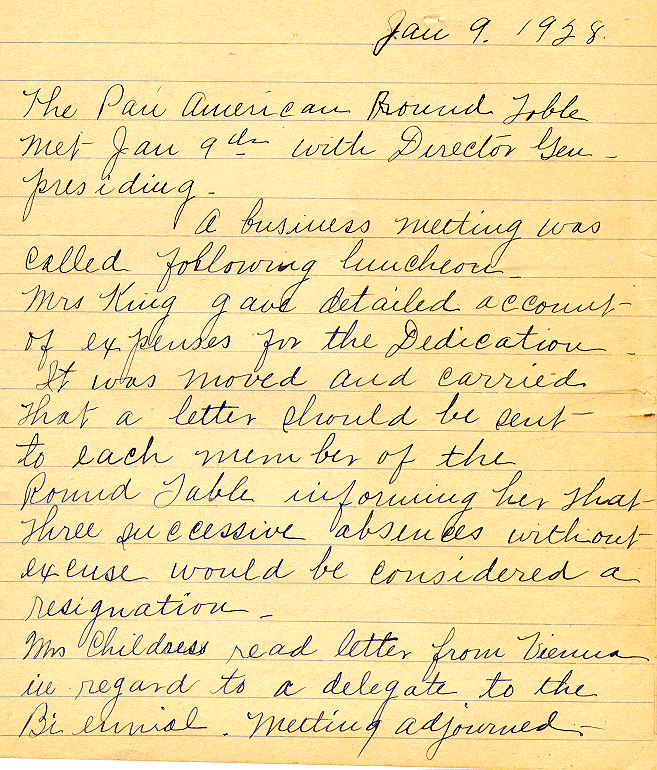 Jan 9. 1928.
The Pan American Round Table
met Jan 9th with Director Gen-
presiding-
A business meeting was
called following luncheon-
Mrs King gave detailed account
of expenses for the Dedication-
It was moved and carried
that a letter should be sent
to each member of the
Round Table informing her that
three successive absences without
excuse would be considered a
resignation-
Mrs Childress read letter from Vienna
in regard to a delegate to the
Biennial. Meeting adjourned-